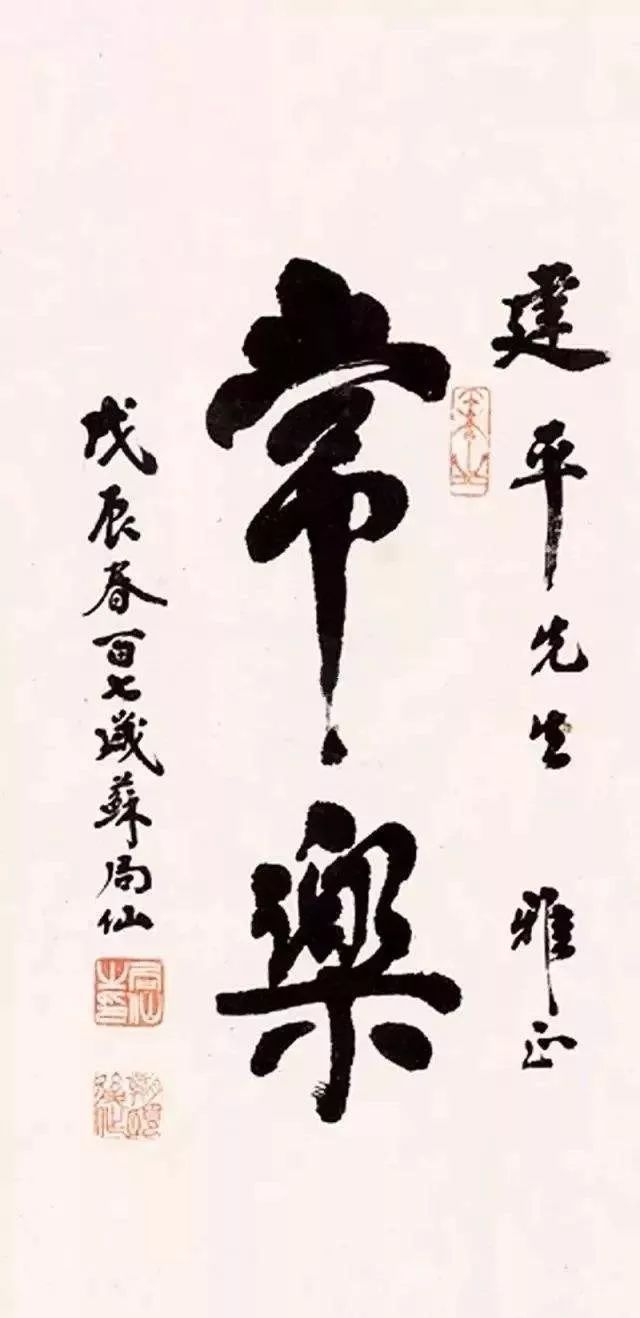 建平先生雅正
常樂
戊辰春百七歲蘇局仙
局仙之璽